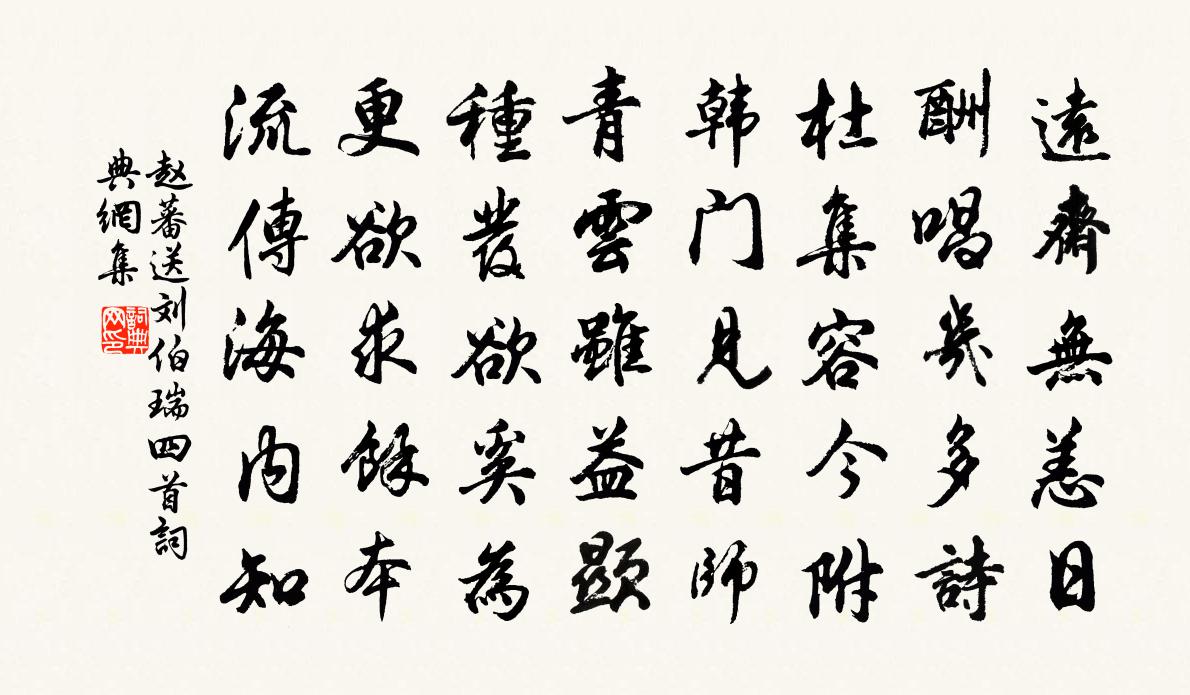 遠齋無恙日
酬唱幾多詩
杜集容今附
韩门見昔師
青雲雖益顯
種發欲奚為
更欲求餘本
流傳海内知
赵蕃送刘伯瑞四首詞
典網集
詞典
网印